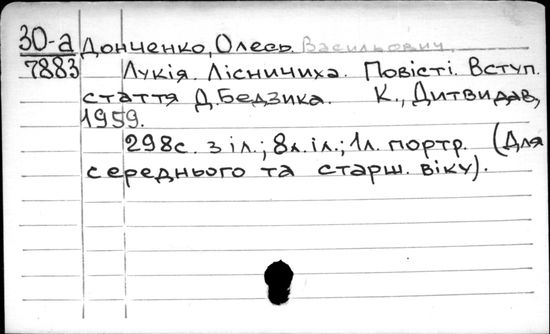 30-а Донченко, Олесь Васильович.
7883 Лукія. Лісничиха. Повісті. Вступ.
стаття Д. Бедзика. К., Дитвидав,
1959.
298с. з іл.; 8л. іл.; 1л. портр. (Для
середнього та старш. віку).